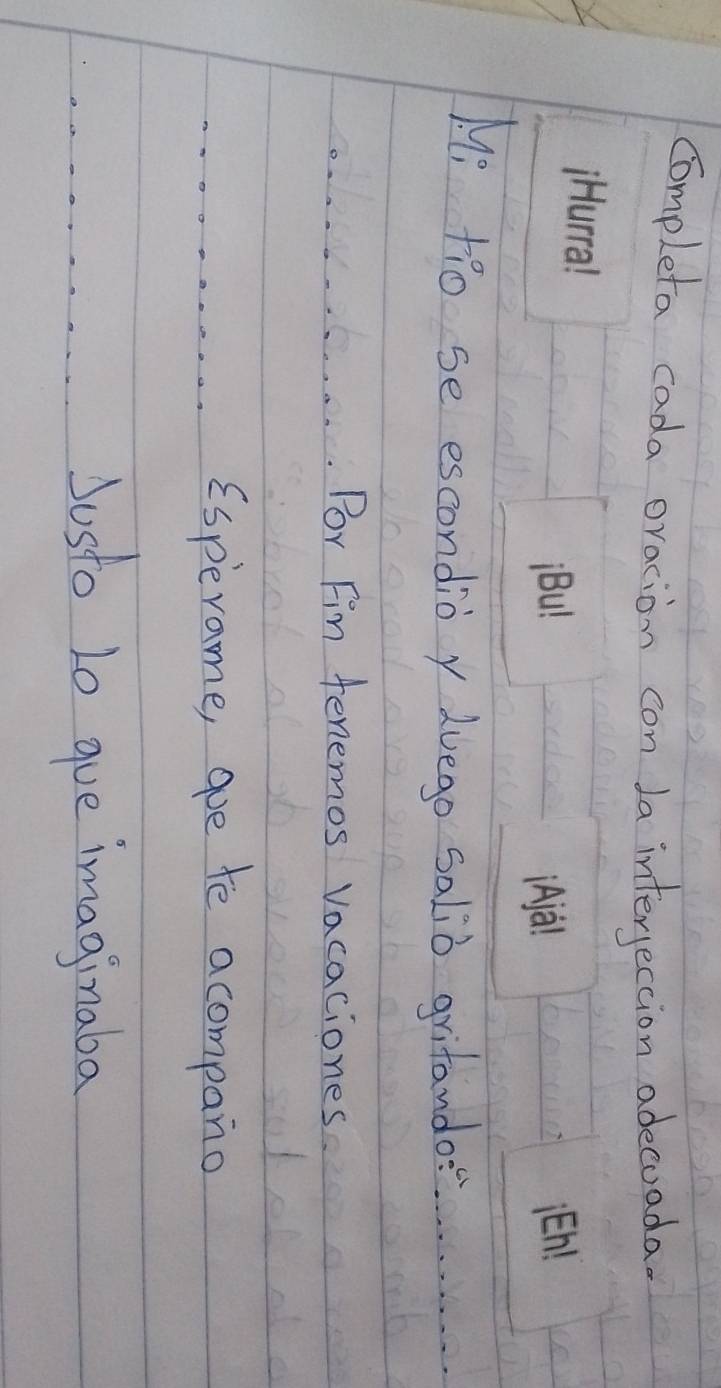 Completa cada oración con la interjección adecuada.
¡Hurra! ¡Bu! ¡Ajá! ¡Eh!
Mi tio se escondió y luego salió gritando: "..........
............. Por Fin tenemos vacaciones.
............. Espérame, que te acompaño
............. Justo lo que imaginaba